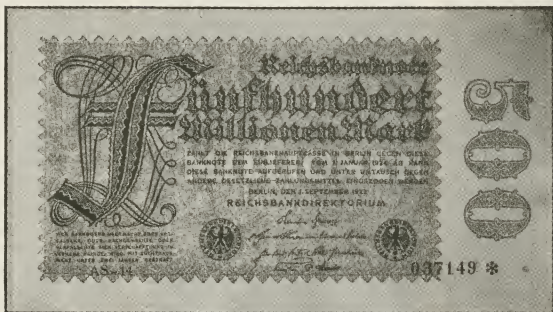 Reichsbanknote
Fünfhundert
Millionen Mark
ZAHLT DIE REICHSBANKHAUPTKASSE IN BERLIN GEGEN DIESE
BANKNOTE DEM EINLIEFERER. VOM 1. JANUAR 1924 AB KANN
DIESE BANKNOTE AUFGERUFEN UND UNTER UMTAUSCH GEGEN
ANDERE GESETZLICHE ZAHLUNGSMITTEL EINGEZOGEN WERDEN
BERLIN, DEN 1. SEPTEMBER 1923
REICHSBANKDIREKTORIUM
AS-14
037149 *
500